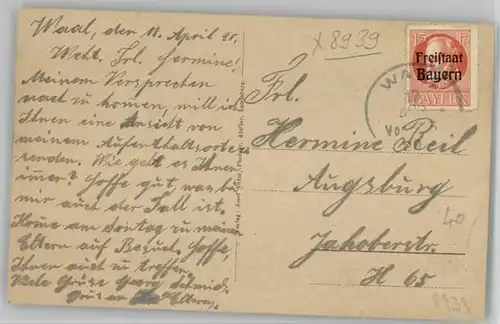 Waal, den 18. April 20.
Wehrt. Frl. Hermine!
Meinem Versprechen
nach zu komen, will ich
Ihnen eine Ansicht von
meinem Aufenthaltsorte
senden. Wie geht es Ihnen
immer? Hoffe gut, was bei
mir auch der Fall ist.
Kome am Sontag zu meinen
Eltern auf Besuch, hoffe,
Ihnen auch zu treffen.
Viele Grüße Georg Schmid.
Grüs an Eltern.
x 8939
15 Pf
Freistaat
Bayern
BAYERN
WA
Vo
Frl.
Hermine Beil
Augsburg
Jakoberstr.
H 65
40
8939